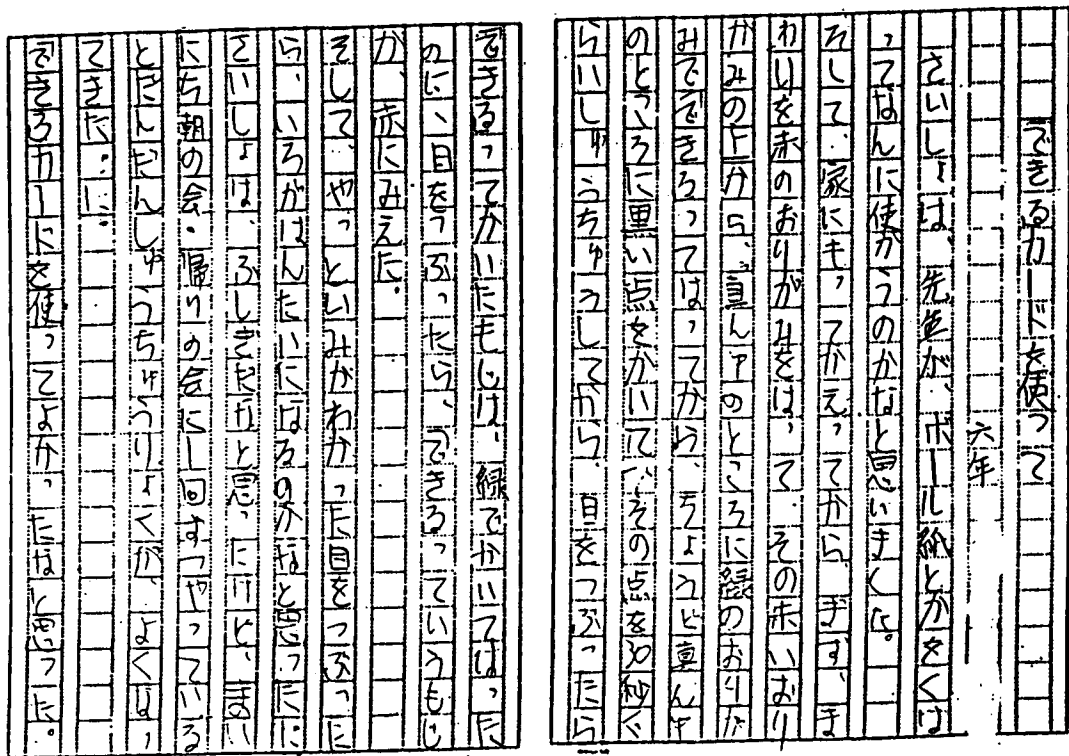 できるカードを使って
六年
さいしょは、先生が、ボール紙とかをくば
ってなんに使かうのかなと思いました。
そして、家にもってかえってから、まず、ま
わりを赤のおりがみをはって、その赤いおり
がみの上から、真ん中のところに緑のおりが
みでできるってはってから、ちょうど真ん中
のところに黒い点をかいて、その点を30秒ぐ
らいしゅうちゅうしてから、目をつぶったら
できるってかいたもじは、緑でかいてはった
のに、目をつぶったら、できるっていうもじ
が、赤にみえた。
そして、やっといみがわかった目をつぶった
ら、いろがはんたいになるのかなと思ったに
さいしょは、ふしぎだなと思ったけど、まい
にち朝の会・帰りの会に一回ずつやっている
とだんだんしゅうちゅうりょくが、よくなっ
てきた。に。
できるカードを使ってよかったなと思った。